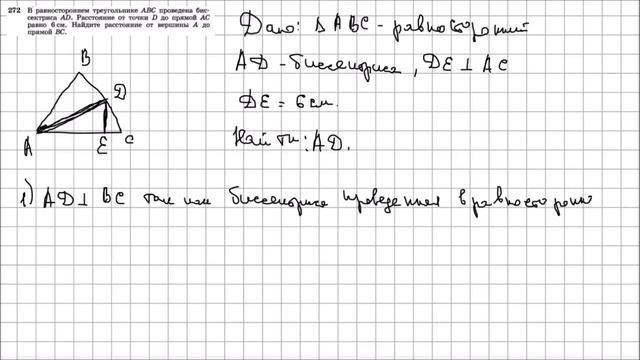 272 В равностороннем треугольнике ABC проведена бис-
сектриса AD. Расстояние от точки D до прямой AC
равно 6 см. Найдите расстояние от вершины A до
прямой BC.
Дано: Δ ABC - равносторонний
AD - биссектриса, DE ⊥ AC
DE = 6 см.
Найти: AD.
B
D
A E C
1) AD ⊥ BC так как биссектриса проведенная в равносторонн